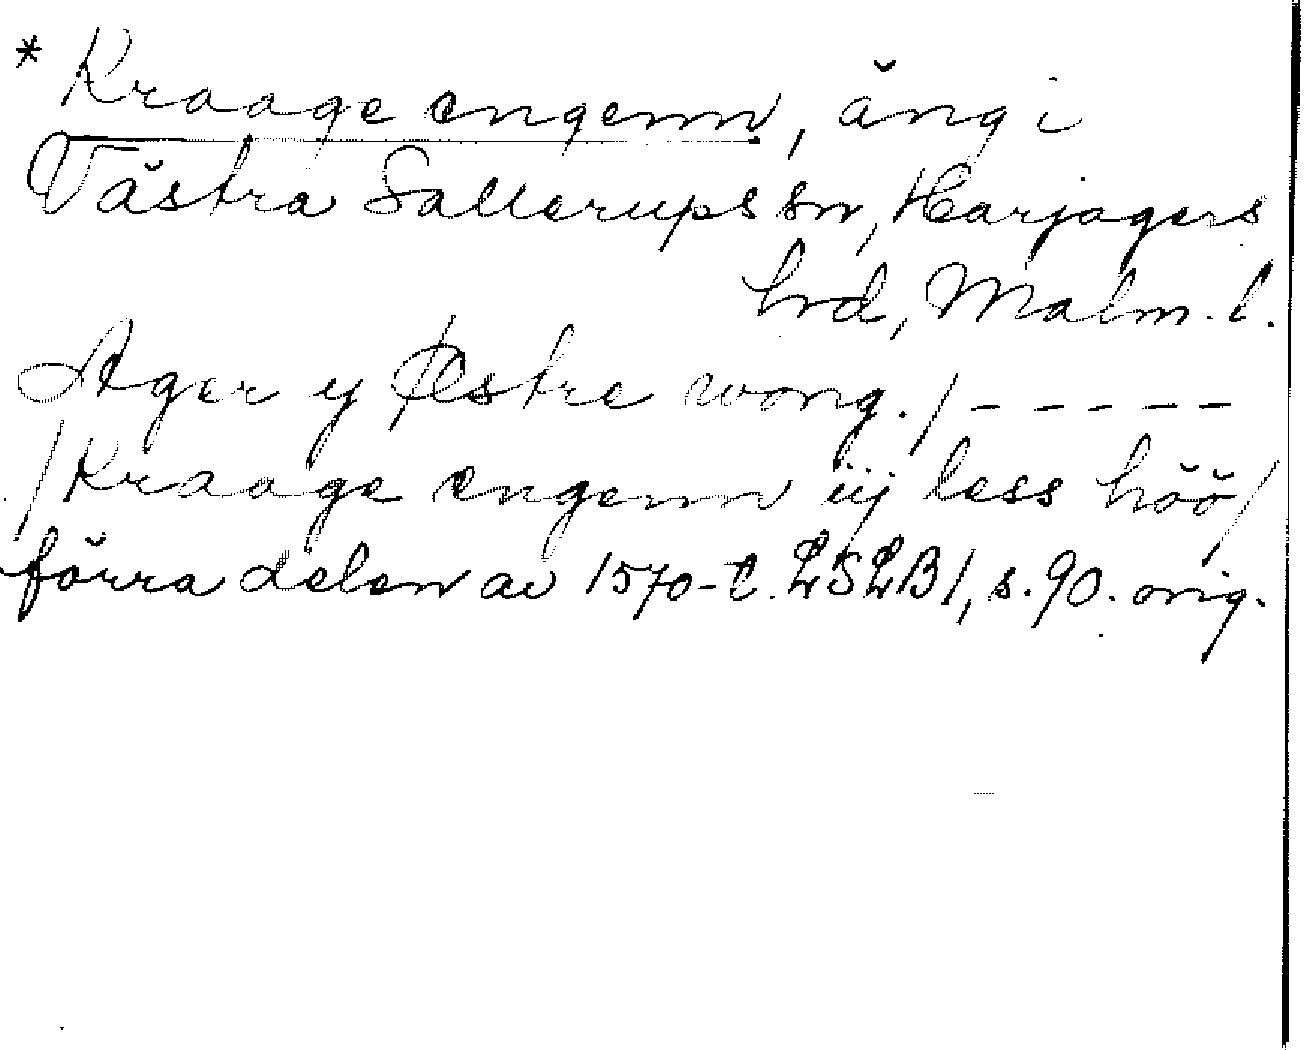 * Kraage engenn, äng i
Västra Sallerups sn, Harjagers
hrd, Malm. l.
Ager y Østre wong. / - - - - -
/ Kraage engenn iij less höö /
förra delen av 1570-t. LSLB 1, s. 90. orig.